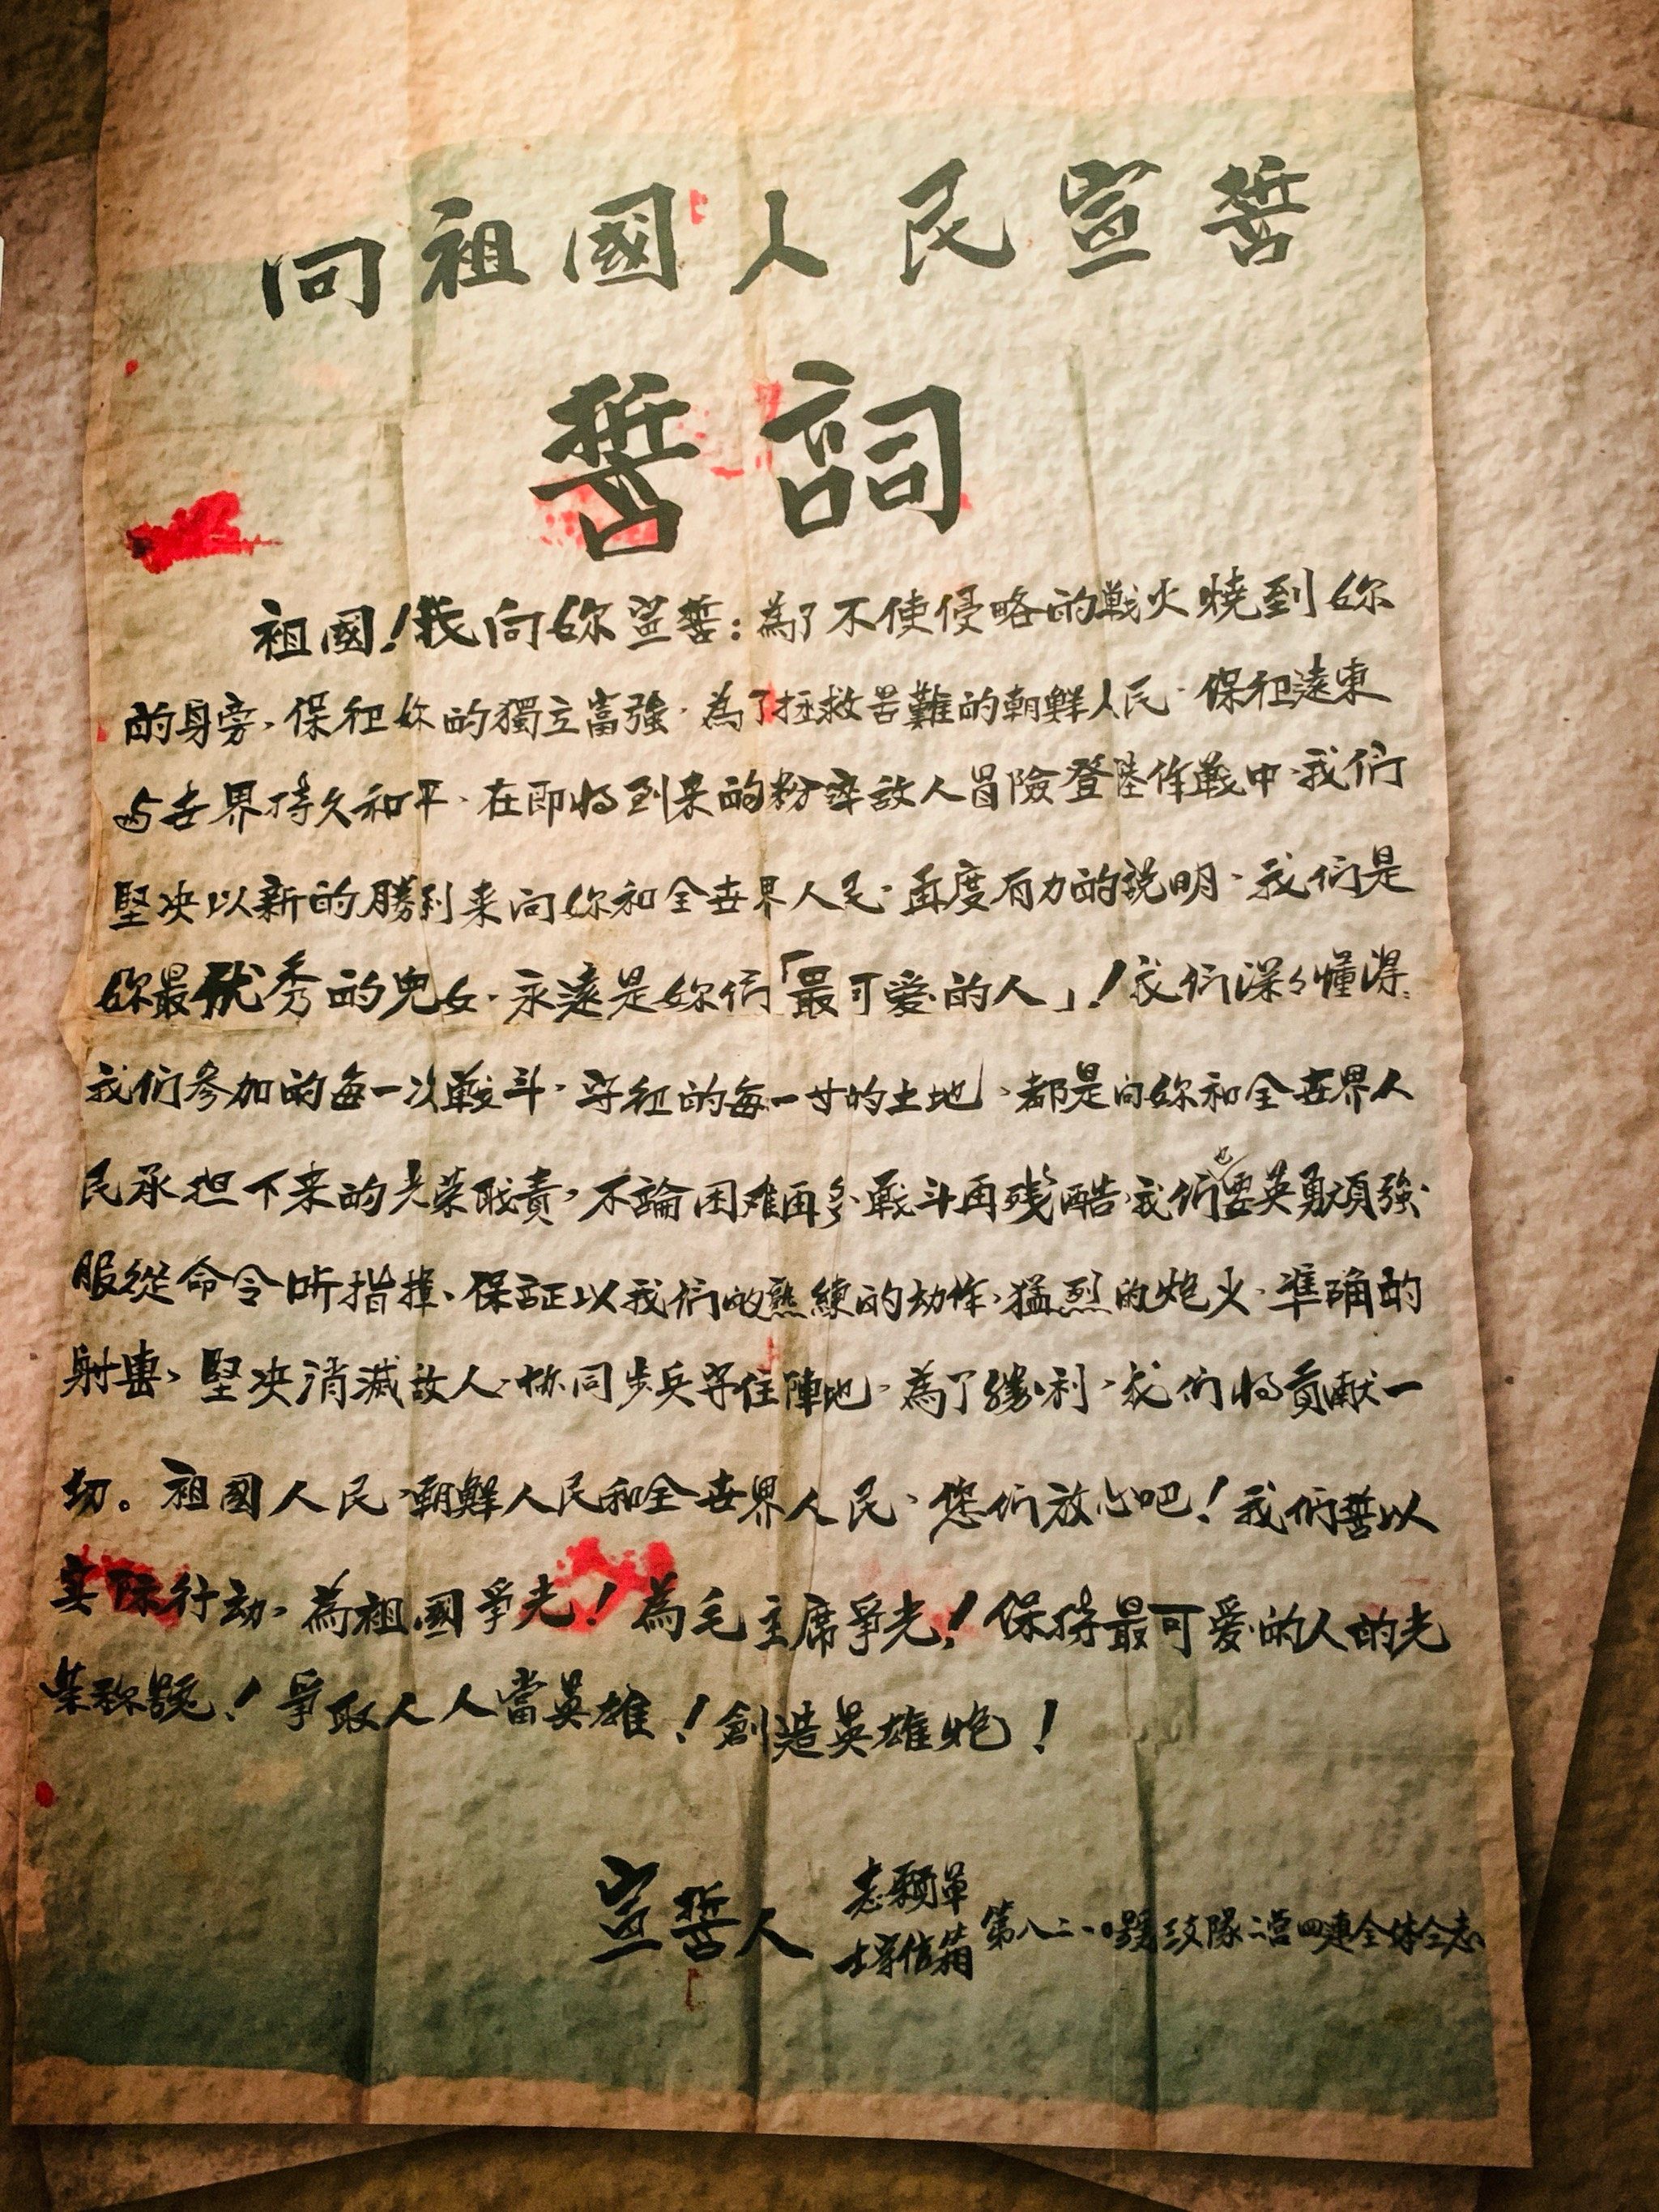 向祖國人民宣誓
誓詞
祖國!我向妳宣誓:為了不使侵略的戰火燒到妳
的身旁,保衛妳的獨立富強,為了拯救苦難的朝鮮人民,保衛遠東
与世界持久和平,在即将到来的粉碎敌人冒險登陸作戰中,我们
堅决以新的勝利来向妳和全世界人民,再度有力的說明,我们是
妳最优秀的兒女,永遠是妳们「最可爱的人」!我们深々懂得:
我们参加的每一次戰斗,守衛的每一寸的土地,都是向妳和全世界人
民承担下来的光荣职責,不論困难再多戰斗再残酷,我们也要英勇頑強,
服從命令听指揮、保証以我们的熟練的动作,猛烈的炮火,準确的
射击,堅决消滅敌人,协同步兵守住陣地,為了勝利,我们将貢献一
切。祖國人民、朝鮮人民和全世界人民,您们放心吧!我们誓以
实际行动,為祖國爭光!為毛主席爭光!保持最可爱的人的光
荣称號!爭取人人當英雄!創造英雄炮!
宣誓人 志願軍
信箱 第八二一〇號 支隊二营四連全体仝志